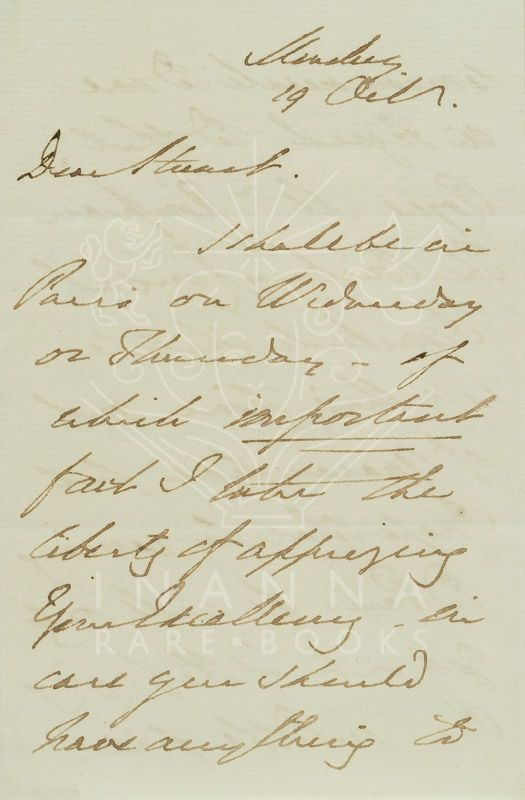 Monday
19 Octr.
Dear Stuart.
I shall be in
Paris on Wednesday
or Thursday - of
which important
fact I take the
liberty of apprizing
Your Excellency - in
case you should
have anything to
INANNA
RARE BOOKS